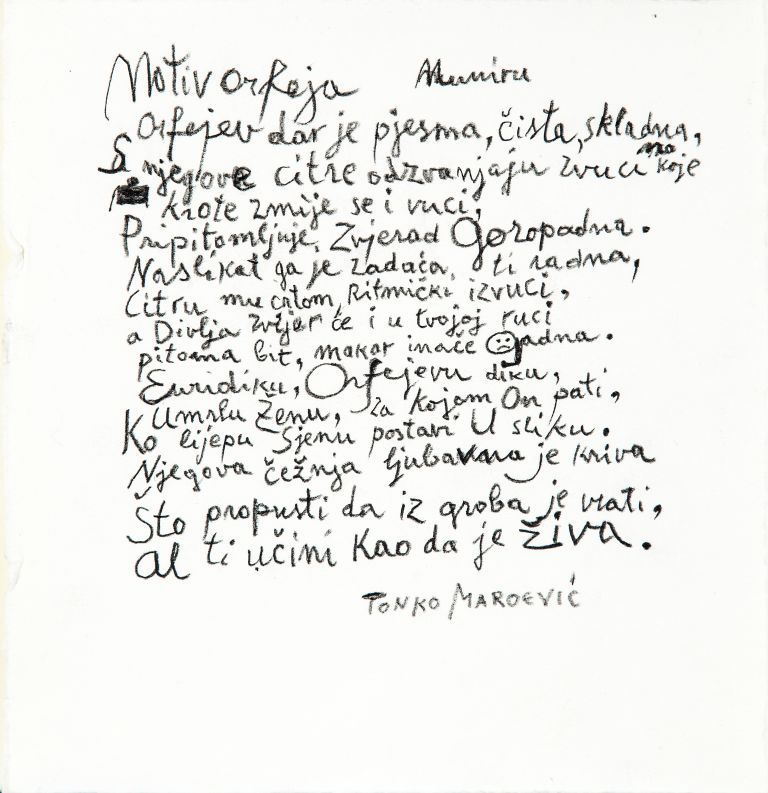 Motiv orfeja Muniru
Orfejev dar je pjesma, čista, skladna,
S njegove citre odzvanjaju zvuci na koje
krote zmije se i vuci,
Pripitomljuje, Zvjerad Goropadna.
Naslikat ga je zadaća, ti radna,
Citru mu crtom, Ritmički izvuci,
a Divlja zvijer će i u tvojoj ruci
pitoma bit, makar inače gadna.
Euridiku, Orfejevu diku,
Umrlu Ženu, za kojom On pati,
Ko lijepu Sjenu postavi U sliku.
Njegova čežnja ljubavna je kriva
Što propusti da iz groba je vrati,
al ti učini Kao da je živa.
TONKO MAROEVIĆ